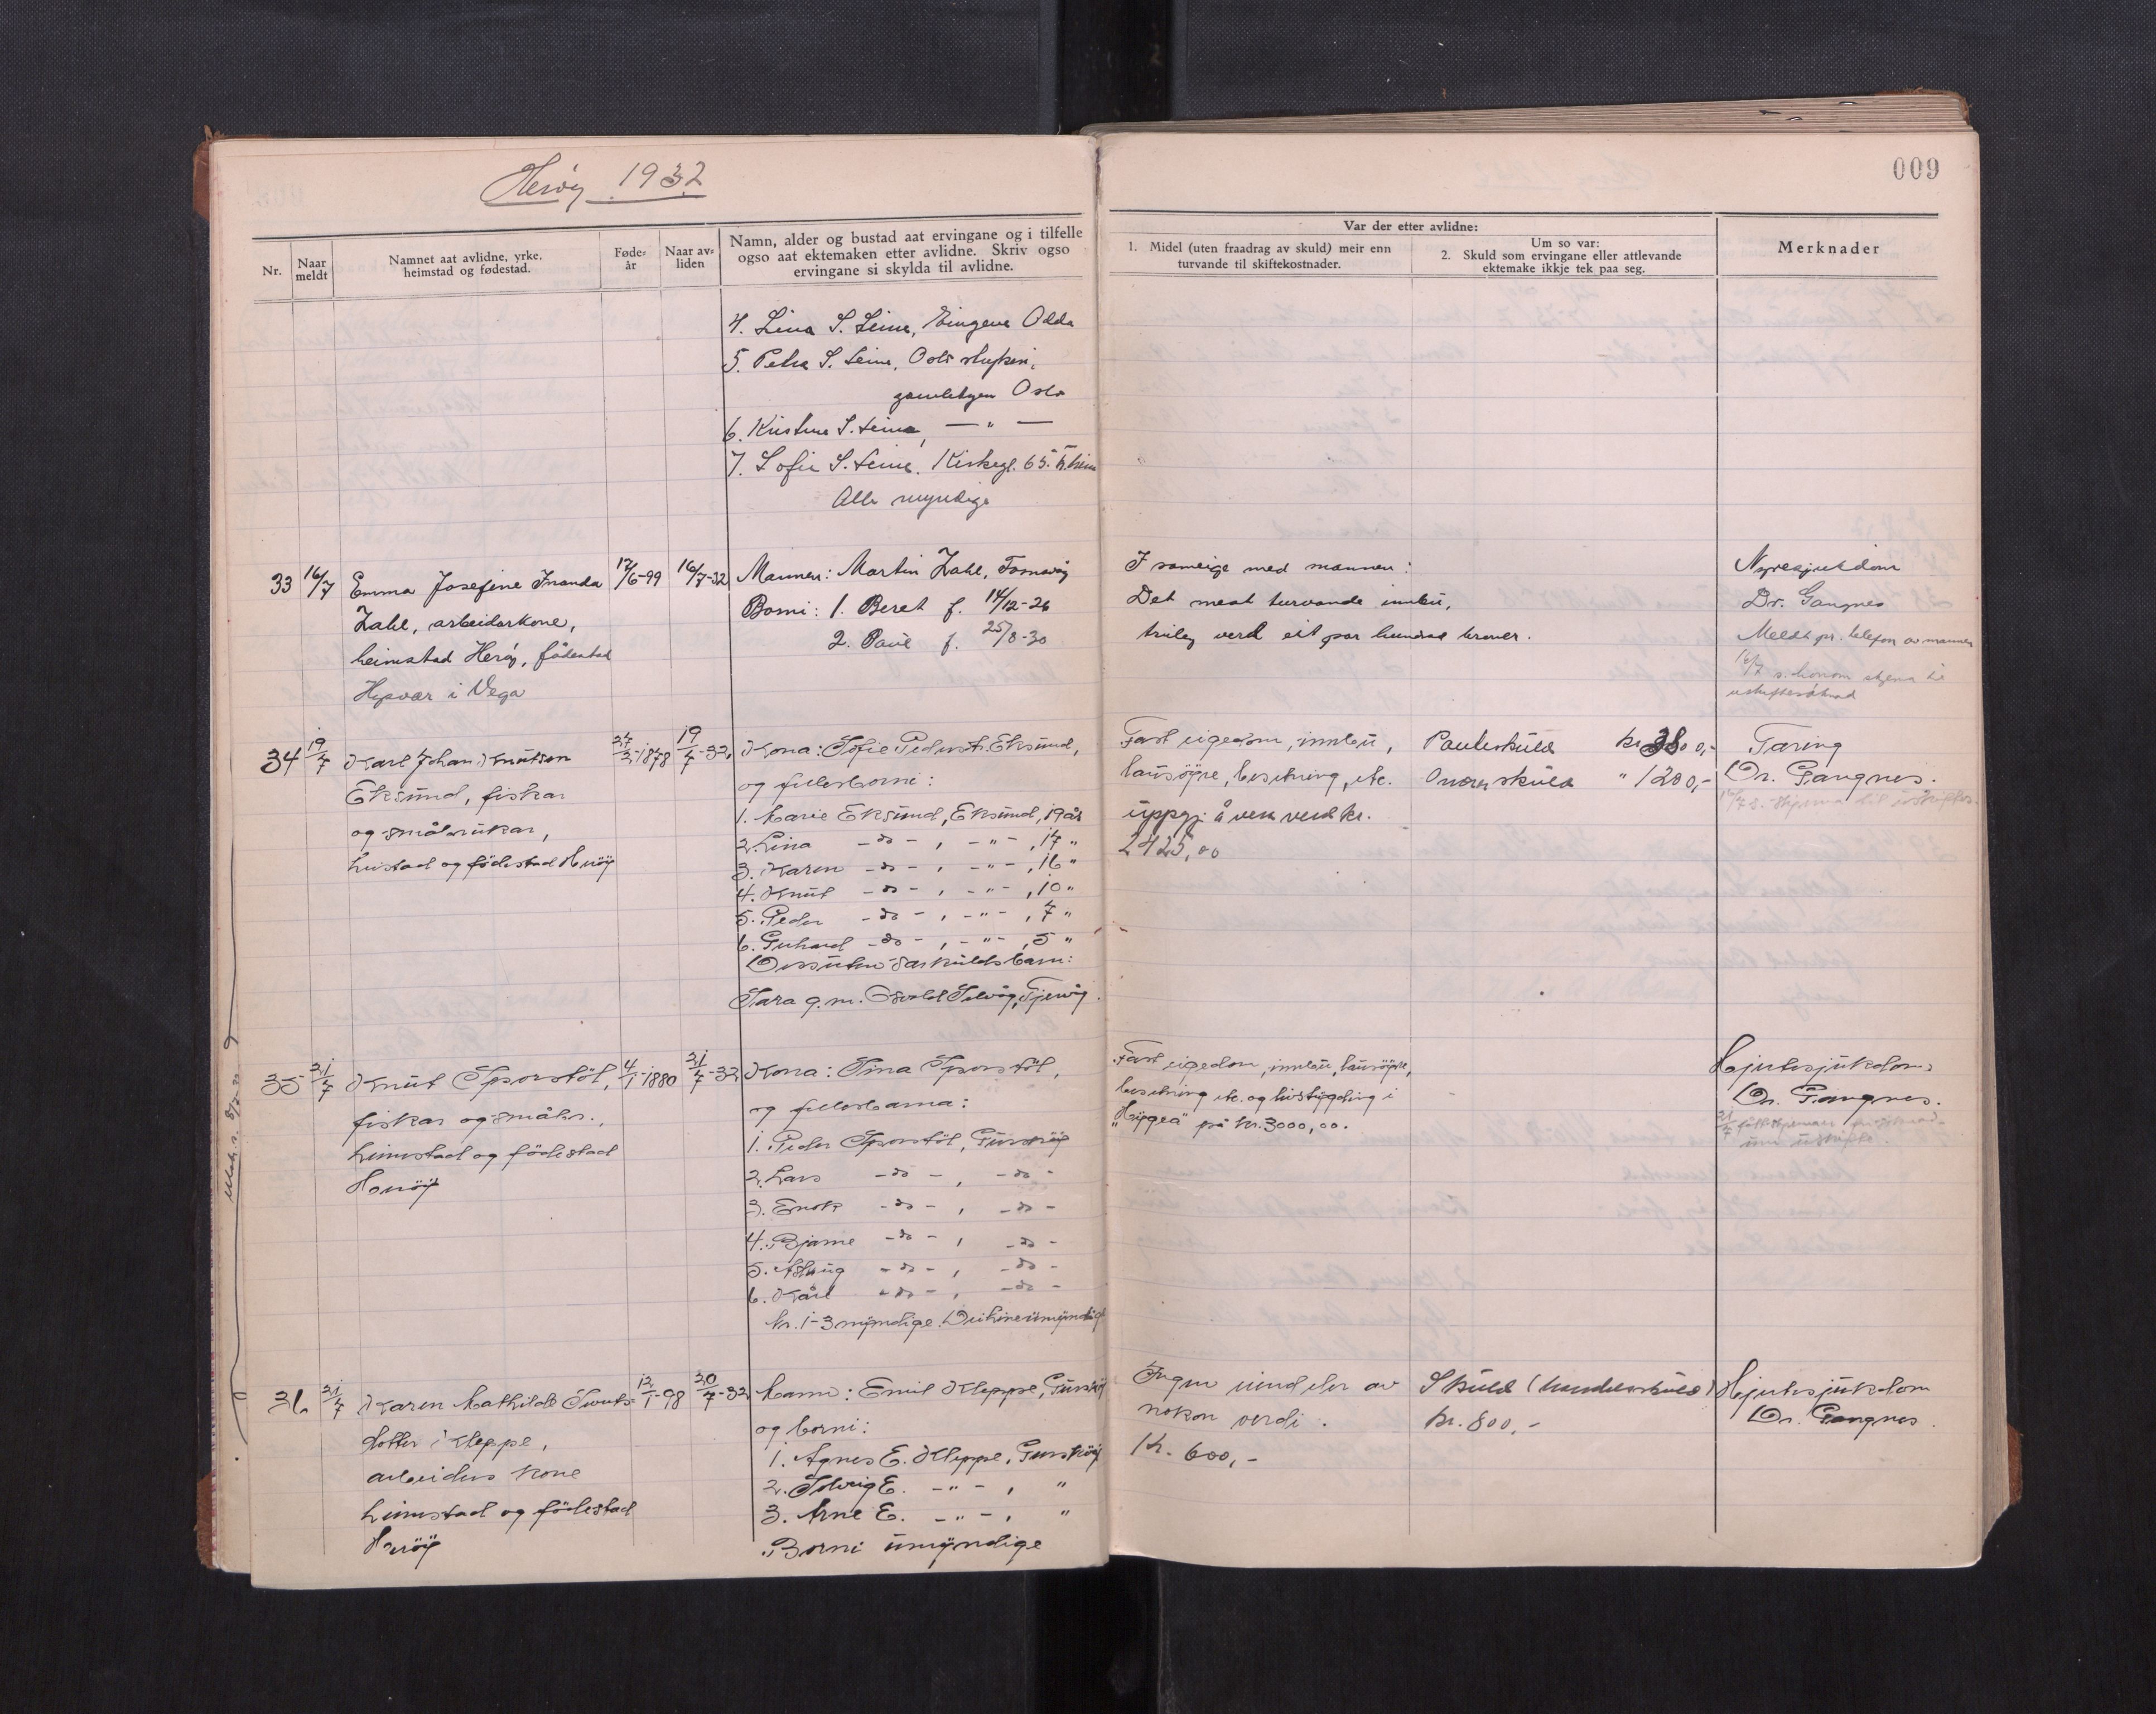 Herøy 1932
009
Nr.
Naar meldt
Namnet aat avlidne, yrke, heimstad og fødestad.
Føde-år
Naar av-liden
Namn, alder og bustad aat ervingane og i tilfelle
ogso aat ektemaken etter avlidne. Skriv ogso
ervingane si skylda til avlidne.
Var der etter avlidne:
1. Midel (uten fraadrag av skuld) meir enn
turvande til skiftekostnader.
Um so var:
2. Skuld som ervingane eller attlevande
ektemake ikkje tek paa seg.
Merknader
4. Lina S. Leine, Odda
5. Petra S. Leine, Oslo
gamlebyen Oslo
6. Kristine S. Leine, — " —
7. Sofie S. Leine, Kirkegt. 65.
Alle myndige
33 16/7 Emma Josefine Inanda 17/6-99 16/7-32 Mannen: Martin Zahl, Fosnavåg
Zahl, arbeidarkone, Borni: 1. Beret f. 14/12-26
heimstad Herøy, fødestad 2. Paul f. 25/8-30
i Vega
I sameige med mannen:
Det mest turvande innbu,
truleg verd eit par hundrad kroner.
Nyresjukdom
Dr. Gangnes
Meldt pr. telefon av mannen
16/7 s. honom skjema til
34 19/7 Karl Johan Knutsen 27/3-1878 19/7-32 Kona: Sofie Pedersd. Eksund,
Eksund, fiskar og fellesborni:
og småbrukar, 1. Marie Eksund, Eksund, 19 år
heistad og fødestad Herøy 2. Lina -do- , -"- , 17 "
3. Karen -do- , -"- , 16 "
4. Knut -do- , -"- , 10 "
5. Peder -do- , -"- , 7 "
6. Gerhard -do- , -"- , 5 "
Dessuten særkuldsbarn:
Sara g.m. Osvald Solvåg, Tjervåg.
Fast eigedom, innbu,
lausøyre, besetning, etc.
uppgj. å vera verd kr.
2425,00
Panteskuld kr. 3800,-
Onnor skuld " 1200,-
Tæring
Dr. Gangnes.
35 21/7 Knut Sporstøl, 4/1-1880 21/7-32 Kona: Sina Sporstøl,
fiskar og småbr., og fellesborna:
heimstad og fødestad 1. Peder Sporstøl, Gurskøy
Herøy 2. Lars -do- , -do-
3. Enok -do- , -do-
4. Bjarne -do- , -do-
5. Åslaug -do- , -do-
6. Kåre -do- , -do-
Nr. 1-3 myndige. Dei hine umyndige
Fast eigedom, innbu, lausøyre,
besetning etc. og livstrygding i
"Høygea" på kr. 3000,00.
Hjartesjukdom.
Dr. Gangnes.
36 21/7 Karen Mathilde Siverts- 12/1-98 20/7-32 Mann: Emil Kleppe, Gurskøy
dotter Kleppe, og borni:
arbeidars kone 1. Agnes E. Kleppe, Gurskøy
heimstad og fødestad 2. Solveig E. -"- , "
Herøy 3. Arne E. -"- , "
Borni umyndige
Ingen eindeler av
nokon verdi.
Kr. 600,-
Skuld (handelsskuld)
kr. 800,-
Hjartesjukdom
Dr. Gangnes.